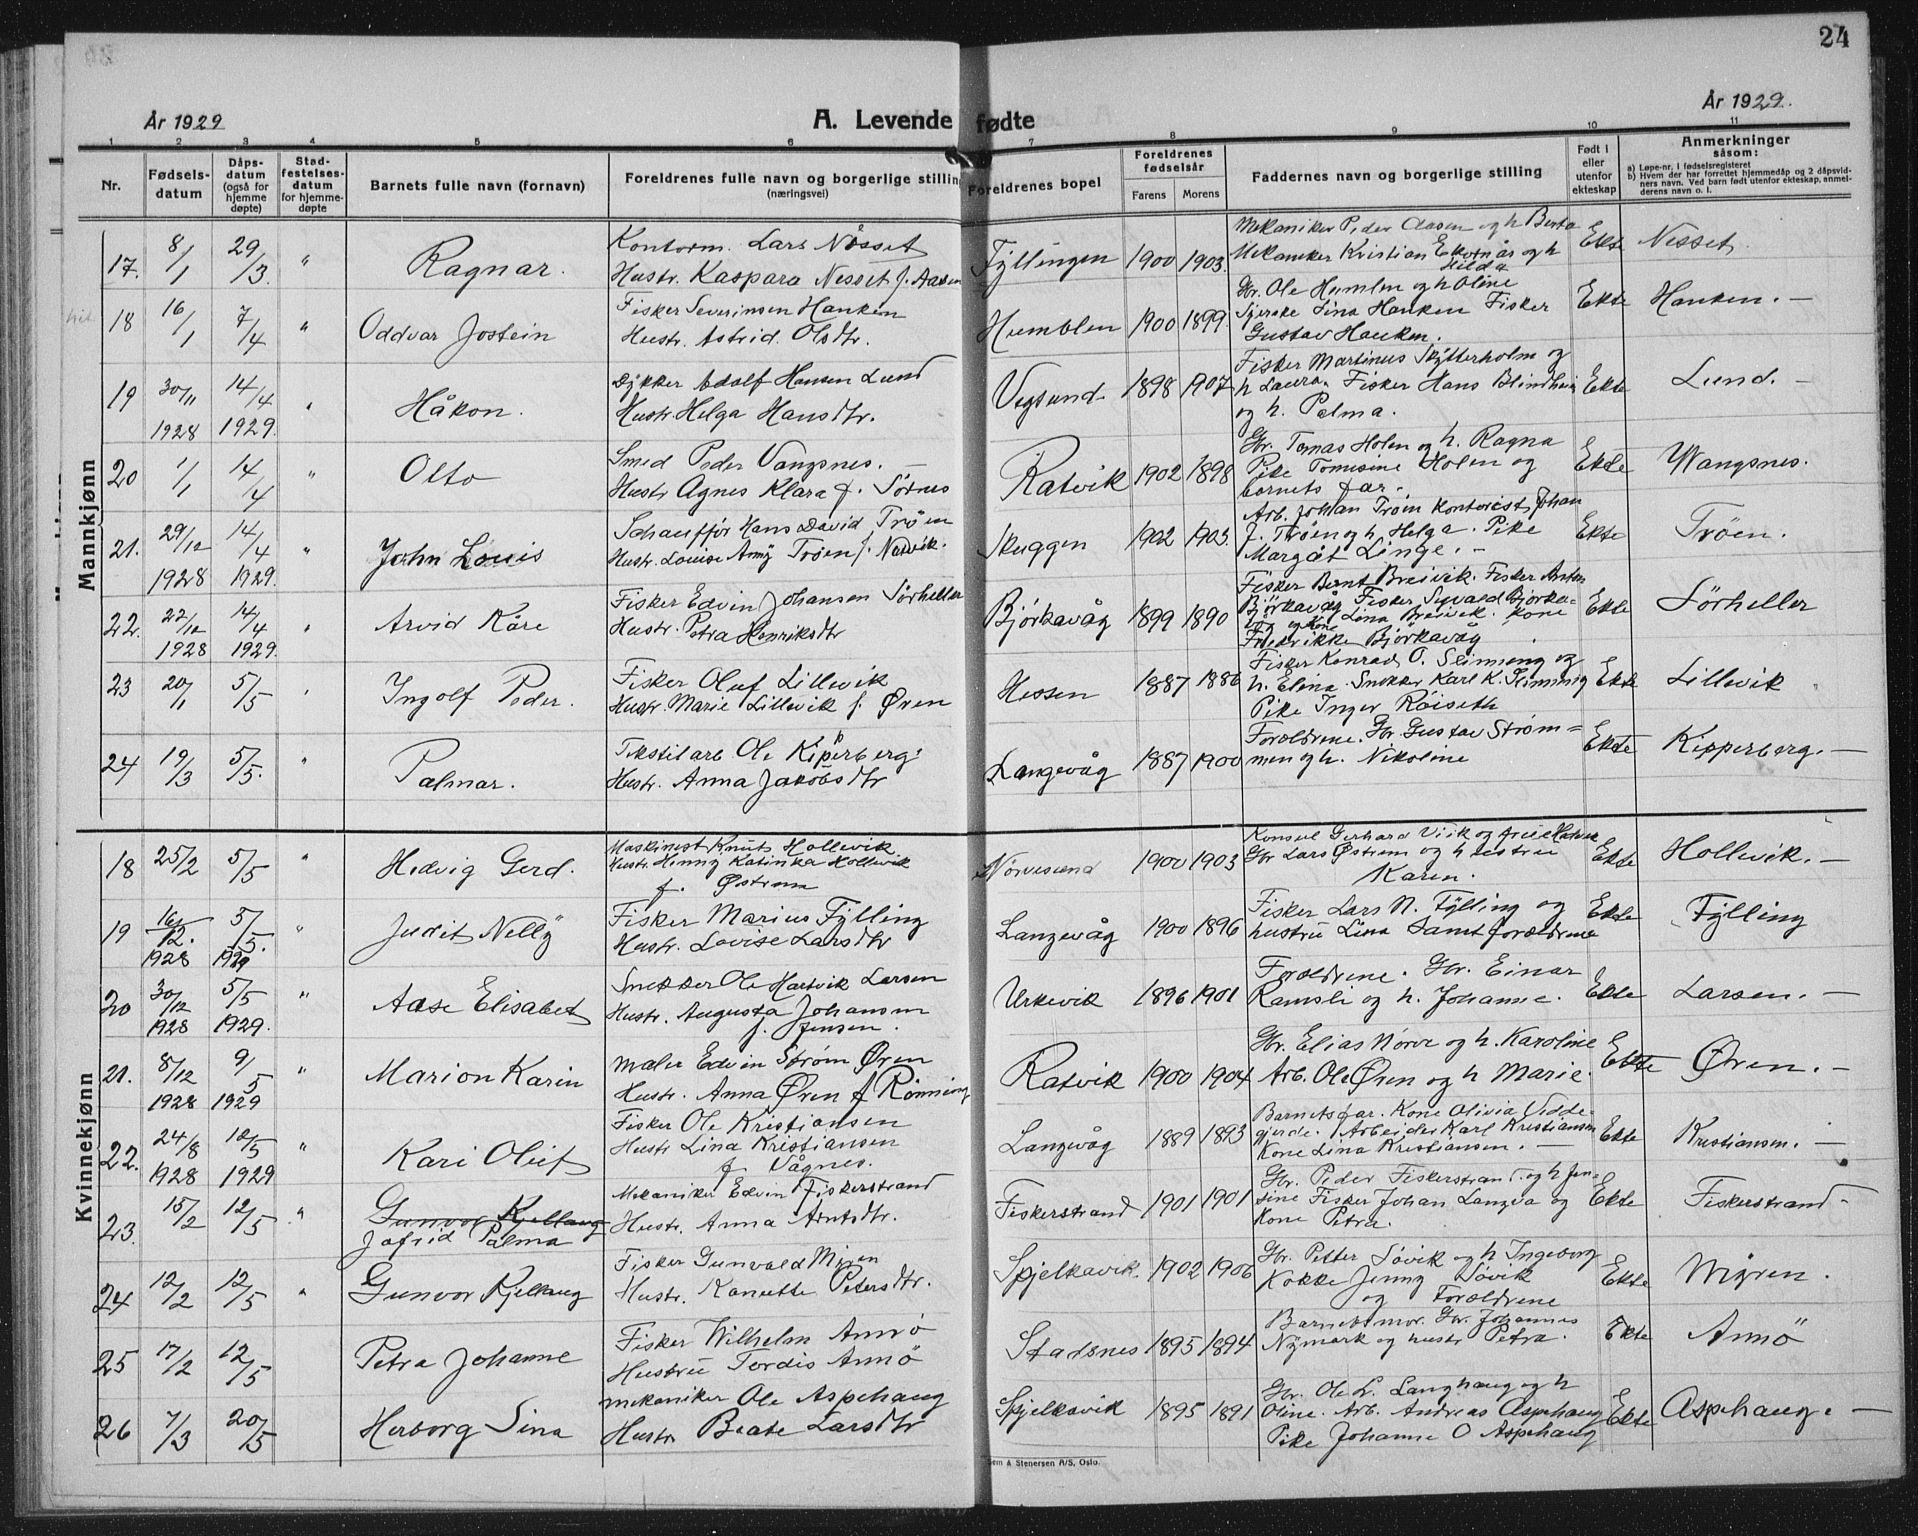 24
År 1929
A. Levende fødte
År 1929.
1 2 3 4 5 6 7 8 9 10 11
Nr.
Fødsels-
datum
Dåps-
datum
(også for
hjemme
døpte)
Stad-
festelses-
datum
for hjemme-
døpte
Barnets fulle navn (fornavn)
Foreldrenes fulle navn og borgerlige stilling
(næringsvei)
Foreldrenes bopel
Foreldrenes
fødselsår
Farens Morens
Faddernes navn og borgerlige stilling
Født i
eller
utenfor
ekteskap
Anmerkninger
såsom:
a) Løpe-nr. i fødselsregisteret
b) Hvem der har forrettet hjemmedåp og 2 dåpsvid-
ners navn. Ved barn født utenfor ekteskap, anmel-
derens navn o. l.
Mannkjønn
17. 8/1 29/3. " Ragnar.
Kontorm. Lars Nåsset
Hustr. Kaspara Nesset f. Aasen
Fyllingen 1900 1903.
Mekaniker Peder Aasen og h Berta
Mekaniker Kristian Ekornås og h
Hilda
Ekte Nesset.
18 16/1 7/4 " Oddvar Jostein
Fisker Severinsen Hanken
Hustr. Astrid Olsdtr.
Humblen 1900 1899.
Gbr. Ole Humlen og h Oline
Sina Hanken Fisker
Gustav Hanken.
Ekte Hanken. –
19 30/11 1928 14/4 1929. " Håkon.
Dykker Adolf Hansen Lund
Hustr. Helga Hansdtr.
Vegsund 1898 1907
Fisker Martinus Skytterholm og
h Laura. Fisker Hans Blindheim
og h. Palma.
Ekte Lund. –
20 1/1 14/4 " Otto
Smed Peder Vangsnes. –
Hustr Agnes Klara f. Sørnes
Ratvik 1902 1898
Gbr. Tomas Holen og h. Ragna
Pike Tomesine Holen og
barnets far.
Ekte Wangsnes.
21. 29/12 1928 14/4 1929. " John Louis
Schauffør Hans David Trøen
Hustr. Louise Amy Trøen f. Nesvik.
Skuggen 1902 1903.
Arb. Johan Trøen Kontorist Johan
J. Trøen og h Helga. Pike
Margåt Linge. –
Ekte Trøen.
22. 22/12 1928 14/4 1929. " Arvid Kåre
Fisker Edvin Johansen Sørheller
Hustr. Petra Henriksdtr
Bjørkavåg 1899 1890
Fisker Bernt Breivik. Fisker Anton
Bjørkavåg Fisker Syvald Bjørka-
våg og Kone Lina Breivik. Kone
Fredrikke Bjørkavåg
Ekte Sørheller
23 20/1 5/5 " Ingolf Peder.
Fisker Oluf Lillevik
Hustr. Marie Lillevik f. Øren
Hessen 1887 1886
Fisker Konrad O. Slinning og
h. Elina. Snekker Karl K. Slinning
Pike Inger Røiseth
Ekte Lillevik
24 19/3 5/5. " Palmar.
Tekstilarb Ole Kipperberg
Hustr. Anna Jakobsdtr
Langevåg 1887 1900
Foreldrene. Gbr. Gustav Strøm-
men og h. Nikoline
Ekte Kipperberg. –
Kvinnekjønn
18 25/2 5/5 " Hedvig Gerd.
Maskinist Knut Hollevik
Hustr. Henny Katinka Hollevik
f. Østrem
Nørvesund 1900 1903
Konsul Gerhard Viik og frue
Gbr Lars Østrem og hustru
Karen.
Ekte Hollevik. –
19 16/12. 1928 5/5. 1929 " Judit Nelly
Fisker Marius Fylling
Hustr. Lovise Larsdtr
Langevåg 1900 1896
Fisker Lars N. Fylling og
hustru Lina Samt foreldrene
Ekte Fylling
20 30/12 1928 5/5 1929. " Aase Elisabet
Snekker Ole Hartvik Larsen
Hustr. Augusta Johansen
f. Jensen.
Urkevik 1896 1901
Foreldrene. Gbr. Einar
Ramsli og h. Johanne.
Ekte Larsen. –
21. 8/12 1928 9/5 1929 " Marion Karin
Maler Edvin Strøm Øren
Hustr. Anna Øren f Rønning
Ratvik 1900 1904
Gbr. Elias Nørve og h. Karoline
Arb. Ole Øren og h Marie.
Ekte Øren. –
22. 24/8 1928 12/5 1929 " Kari Oluf
Fisker Ole Kristiansen
Hustr Lina Kristiansen
f Vågnes.
Langevåg 1889 1893
Barnets far. Kone Olivia Vidde-
gjerde. Arbeider Karl Kristiansen
Kone Lina Kristiansen. –
Ekte Kristiansen. –
23. 15/2 12/5 " Gunvor Kjellaug
Jofrid Palma
Mekaniker Edvin Fiskerstrand
Hustr. Anna Arntsdtr.
Fiskerstrand 1901 1901
Gbr. Peder Fiskerstrand og h Jen-
sine Fisker Johan Langva og
Kone Petra.
Ekte Fiskerstrand –
24 12/2 12/5 " Gunvor Kjellaug
Fisker Gunvald Myren
Hustr. Kanutte Petersdtr.
Spjelkavik. 1902 1906
Gbr. Petter Søvik og h Ingeborg
Kokke Jenny Søvik
og Foreldrene
Ekte Myren.
25 17/2 12/5 Petra Johanne
Fisker Wilhelm Annø
Hustru Tordis Annø
Stadsnes 1895 1894
Barnets mor. Gbr. Johannes
Nymark og hustr Petra.
Ekte Annø
26 7/3 20/5 Herborg Sina
Mekaniker Ole Aspehaug
Hustr Beate Larsdtr
Spjelkavik 1895 1891
Gbr. Ole L. Langhaug og h
Oline. Arb. Andreas Aspehaug
Pike Johanne O Aspehaug
Ekte Aspehaug. –
Sem & Stenersen A/S, Oslo.